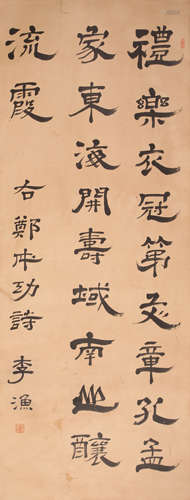 禮樂衣冠第文章孔孟
家東海開壽域南山釀
流霞
右鄭成功詩 李漁